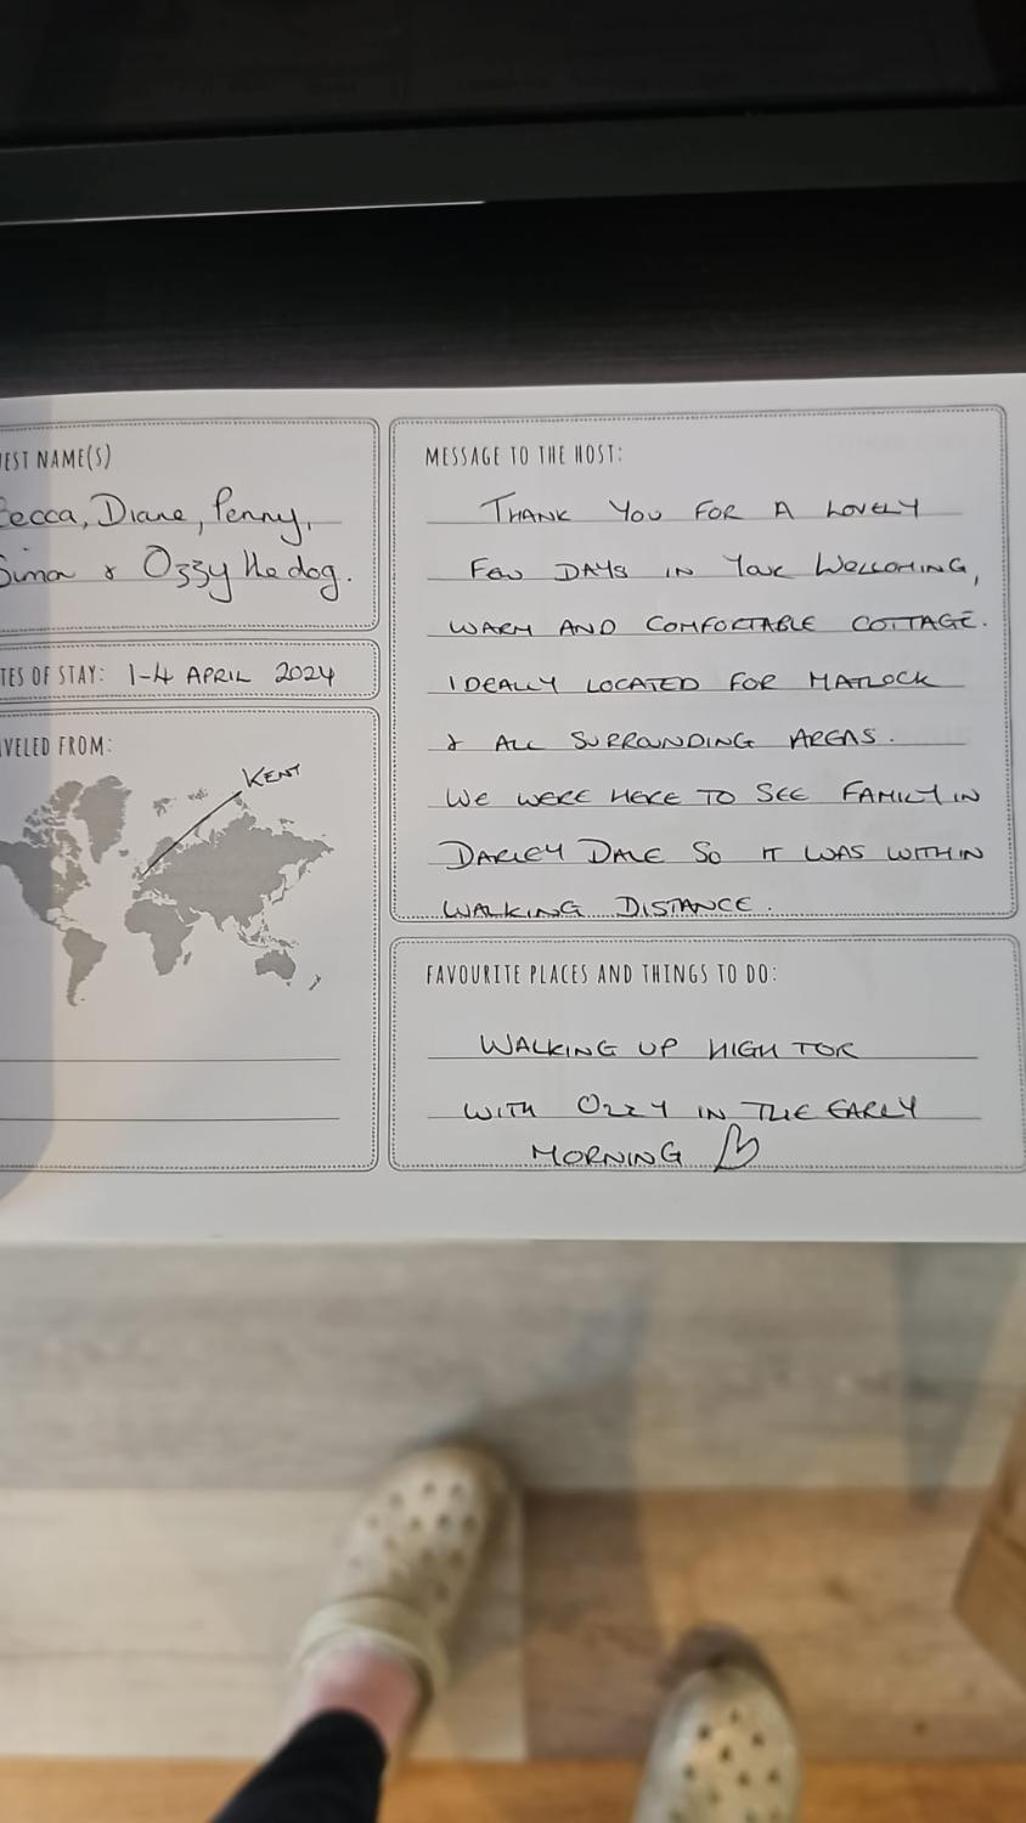 EST NAME(S)
ecca, Diane, Penny,
Simon & Ozzy the dog.
TES OF STAY: 1-4 APRIL 2024
VELED FROM:
KENT
MESSAGE TO THE HOST:
THANK YOU FOR A LOVELY
FEW DAYS IN YOUR WELCOMING,
WARM AND COMFORTABLE COTTAGE.
IDEALLY LOCATED FOR MATLOCK
& ALL SURROUNDING AREAS.
WE WERE HERE TO SEE FAMILY IN
DARLEY DALE SO IT WAS WITHIN
WALKING DISTANCE.
FAVOURITE PLACES AND THINGS TO DO:
WALKING UP HIGH TOR
WITH OZZY IN THE EARLY
MORNING